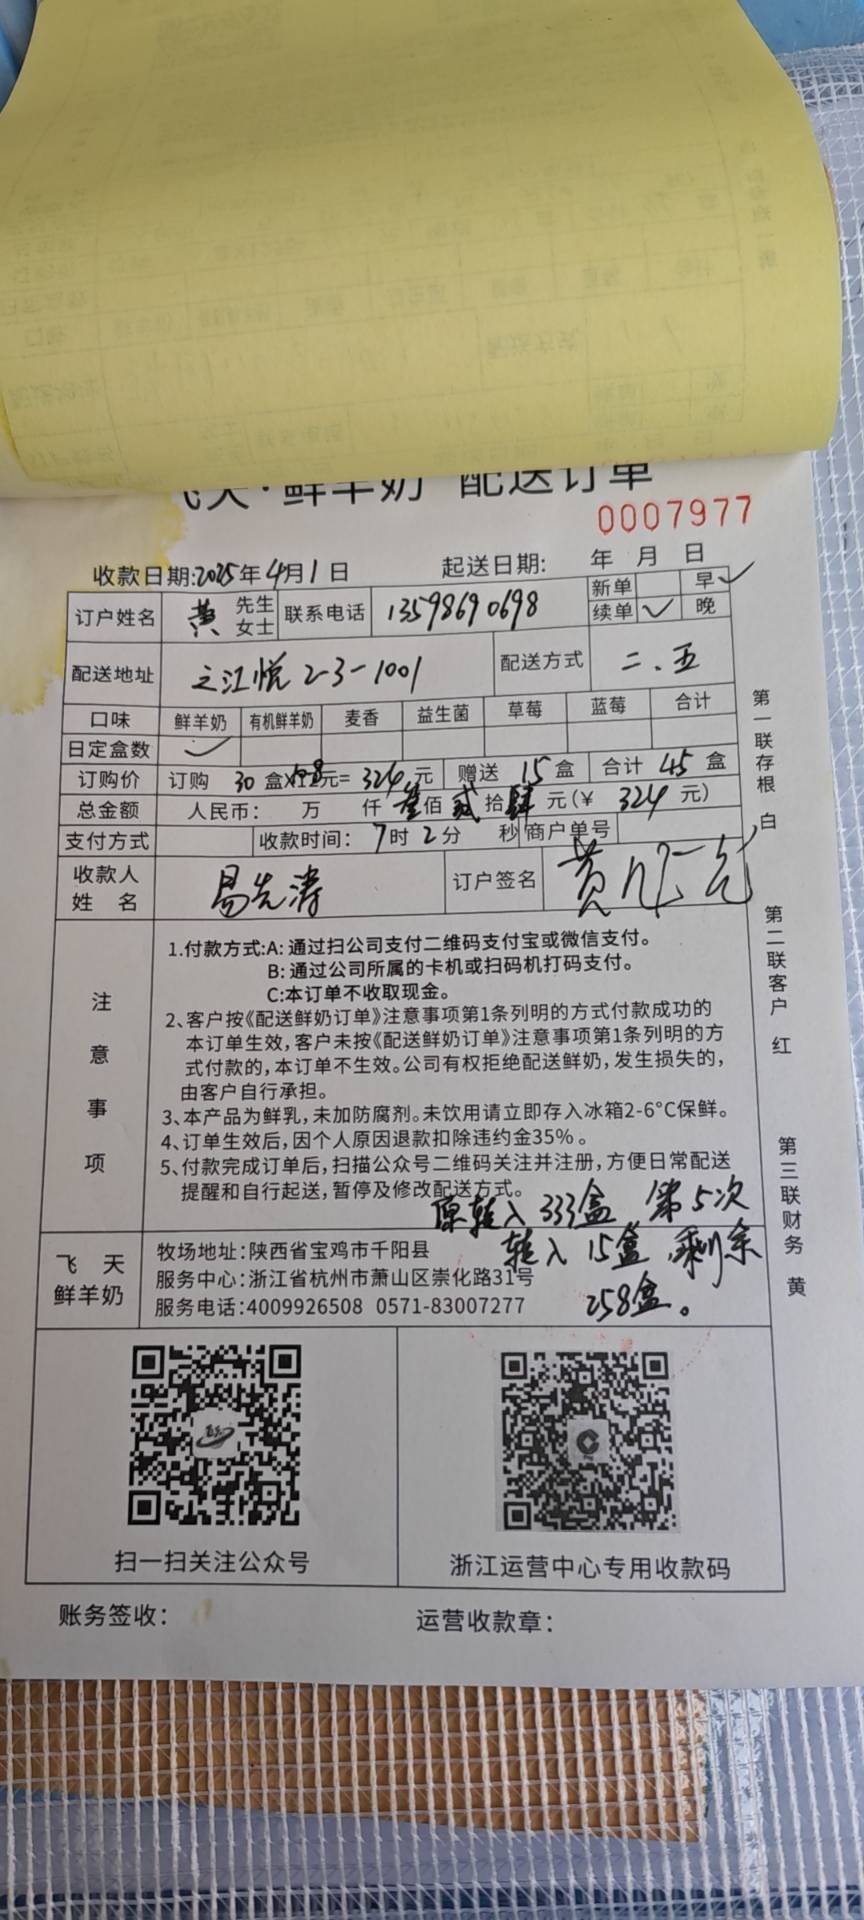 飞天·鲜羊奶 配送订单
0007977
收款日期:2025年4月1日 起送日期: 年 月 日
订户姓名 黄 先生 女士 联系电话 13598690698 新单 早✓
续单✓ 晚
配送地址 之江悦 2-3-1001 配送方式 二、五
口味 鲜羊奶 有机鲜羊奶 麦香 益生菌 草莓 蓝莓 合计
日定盒数 ✓
订购价 订购 30 盒×10.8元= 324 元 赠送 15 盒 合计 45 盒
总金额 人民币: 万 仟 叁佰 贰 拾 肆 元(¥ 324 元)
支付方式 收款时间: 7时 2分 秒 商户单号
收款人姓名 易先涛 订户签名 黄
注意事项
1.付款方式:A: 通过扫公司支付二维码支付宝或微信支付。
B: 通过公司所属的卡机或扫码机打码支付。
C:本订单不收取现金。
2、客户按《配送鲜奶订单》注意事项第1条列明的方式付款成功的
本订单生效,客户未按《配送鲜奶订单》注意事项第1条列明的方
式付款的,本订单不生效。公司有权拒绝配送鲜奶,发生损失的,
由客户自行承担。
3、本产品为鲜乳,未加防腐剂。未饮用请立即存入冰箱2-6°C保鲜。
4、订单生效后,因个人原因退款扣除违约金35%。
5、付款完成订单后,扫描公众号二维码关注并注册,方便日常配送
提醒和自行起送,暂停及修改配送方式。
原转入 333盒 第5次
转入 15盒 剩余
258盒。
飞天鲜羊奶
牧场地址:陕西省宝鸡市千阳县
服务中心:浙江省杭州市萧山区崇化路31号
服务电话:4009926508 0571-83007277
扫一扫关注公众号 浙江运营中心专用收款码
账务签收: 运营收款章:
第一联存根 白
第二联客户 红
第三联财务 黄